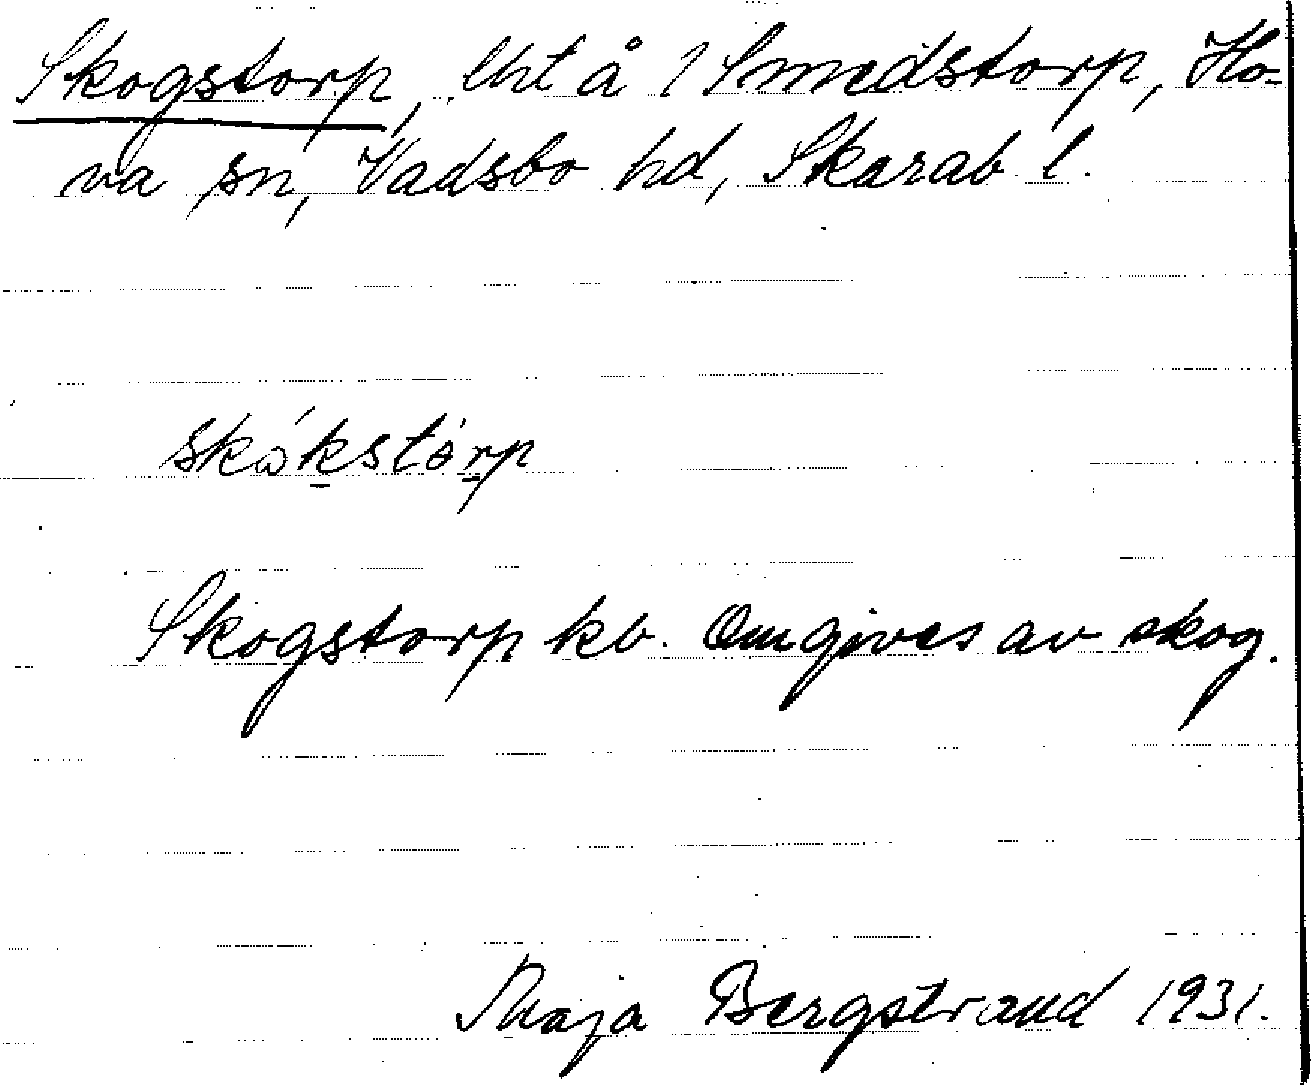 Skogstorp, lht å 1 Smedstorp, Ho-
va sn, Vadsbo hd, Skarab l.
skókstòrp
Skogstorp kb. Omgives av skog.
Maja Bergstrand 1931.